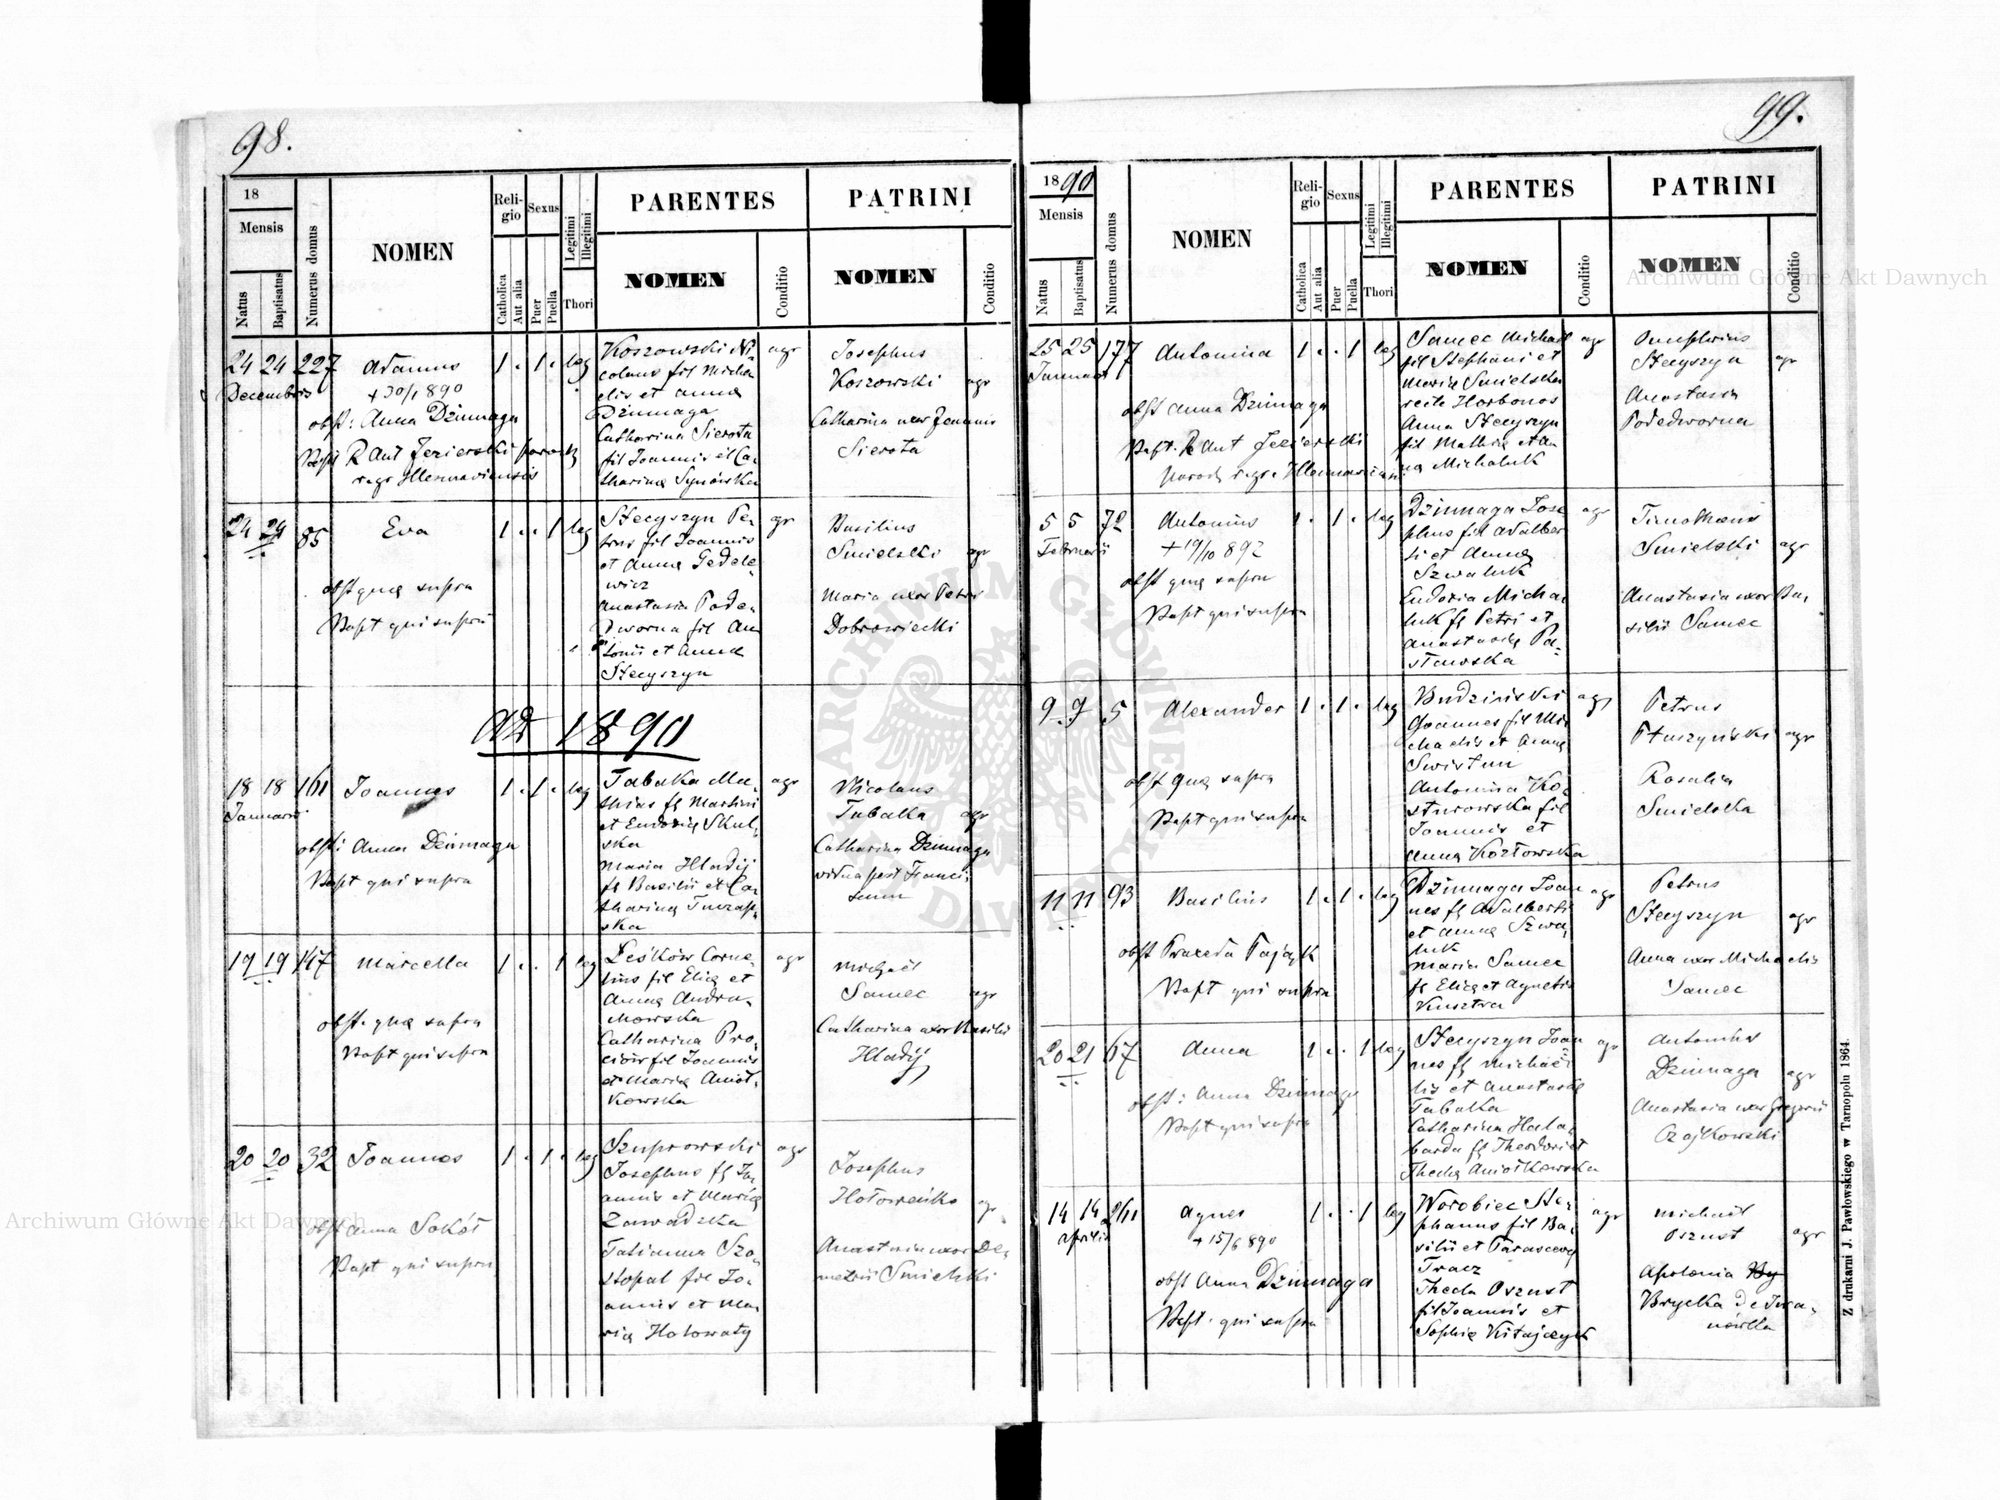 98.
18
Mensis
Natus
Baptisatus
Numerus domus
NOMEN
Religio
Catholica
Aut alia
Sexus
Puer
Puella
Legitimi
Illegitimi
Thori
PARENTES
NOMEN
Conditio
PATRINI
NOMEN
Conditio
24 24 227 Adamus 1 . 1 . leg
Decembris
+ 30/1 890
obst: Anna Dziumaga
Bapt R Ant Jezierski paroch
Koszowski Ni-
colaus fil Micha
elis et Anna
Dziumaga
Catharina Sierota
fil Joannis et Ca-
tharina
agr
Josephus
Koszowski agr
Catharina uxor
Sierota
24 24 85 Eva 1 . . 1 leg
obst quae supra
Bapt qui supra
Steczyszyn Pe-
trus fil Joannis
et Anna Gedele-
wicz
Anastasia Pode-
dworna fil An
tonii et Anna
Steczyszyn
agr
Basilius
Smielski agr
Maria uxor Petri
Dobrowiecki
AD 1890
18 18 161 Joannes 1 . 1 . leg
Januarii
obst: Anna Dziumaga
Bapt qui supra
Tabaka Ma-
thias fil Martini
et Eudoxia Skul-
ska
Maria Hladij
fil Basilii et Ca-
tharina
agr
Nicolaus
Tabaka agr
Catharina Dziumaga
vidua post Franci-
scum
19 19 147 Marcella 1 . . 1 leg
obst. quae supra
Bapt qui supra
Leśków Corne-
lius fil Eliae et
Anna Andru-
chowska
Catharina Pro-
ciów fil Joannis
et Maria Aniol-
kowska
agr
Michael
Samec agr
Catharina uxor Basilii
Hladij
20 20 32 Joannes 1 . 1 . leg
obst Anna Sokół
Bapt qui supra
Szuprowski
Josephus fil Jo-
annis et Maria
Zawadzka
Tatianna Szo-
stopal fil Jo-
annis et Ma-
ria Hołowaty
agr
Josephus
Hołoweńko agr
Anastasia uxor De-
metrii Smielski
99.
1890
Mensis
Natus
Baptisatus
Numerus domus
NOMEN
Religio
Catholica
Aut alia
Sexus
Puer
Puella
Legitimi
Illegitimi
Thori
PARENTES
NOMEN
Conditio
PATRINI
NOMEN
Conditio
25 25 177 Antonina 1 . . 1 leg
Januarii
obst Anna Dziumaga
Bapt. R Ant Jezierski
Samec Michael
fil Stephani et
Maria Smielska
recte Horbonos
Anna Steczyszyn
fil Mathiae et An-
na Michaluk
agr
Onuphrius
Steczyszyn agr
Anastasia
Podedworna
5 5 72 Antonius 1 . 1 . leg
Februarii
+ 19/10 892
obst quae supra
Bapt qui supra
Dziumaga Jose
phus fil Adalber
ti et Anna
Szwaluk
Eudoxia Micha
luk fil Petri et
Anastasia Pa-
stawska
agr
Timotheus
Smielski agr
Anastasia uxor Ba-
silii Samec
9 9 5 Alexander 1 . 1 . leg
obst quae supra
Bapt qui supra
Budziński
Joannes fil Mi-
chaelis et Anna
Świstun
Antonina Ko-
sturowska fil
Joannis et
Anna Kozłowska
agr
Petrus
Ptaszyński agr
Rosalia
Smielska
11 11 93 Basilius 1 . 1 . leg
obst Praxeda Pająk
Bapt qui supra
Dziumaga Joan
nes fil Adalberti
et Anna Szwa-
luk
Maria Samec
fil Eliae et Agnetis
Kusztra
agr
Petrus
Steczyszyn agr
Anna uxor Michaelis
Samec
20 21 67 Anna 1 . . 1 leg
obst: Anna Dziumaga
Bapt qui supra
Steczyszyn Joan
nes fil Michae-
lis et Anastasia
Tabaka
Catharina Hala-
barda fil Theodori et
Thecla Aniołkowska
agr
Antonius
Dziumaga agr
Anastasia uxor Gregorii
Czajkowski
14 14 Agnes 1 . . 1 leg
Aprilis
+ 15/6 890
obst Anna Dziumaga
Bapt. qui supra
Worobiec Ste-
phanus fil Ba-
silii et Parasceva
Tracz
Thecla Oszust
fil Joannis et
Sophia Kitajczuk
agr
Michael
Oszust agr
Apolonia
Brycka de Iwa-
nówka
Z drukarni J. Pawłowskiego w Tarnopolu 1864.
Archiwum Główne Akt Dawnych
Archiwum Główne Akt Dawnych
ARCHIWUM GŁÓWNE AKT DAWNYCH